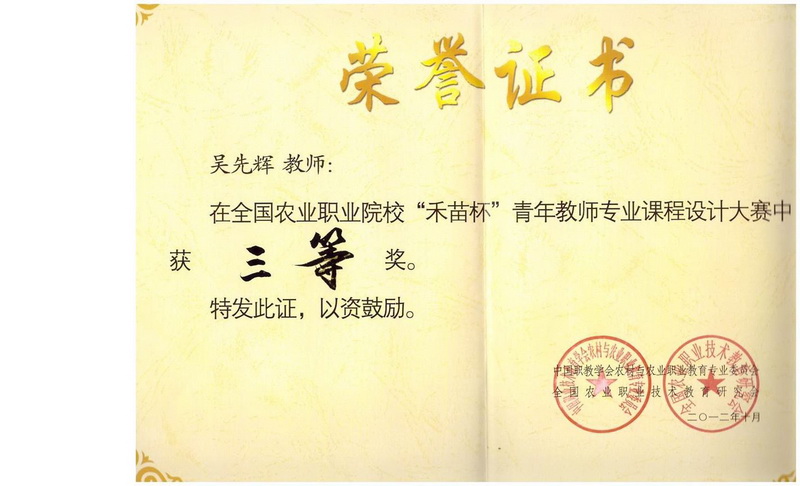 荣誉证书
吴先辉 教师:
在全国农业职业院校“禾苗杯”青年教师专业课程设计大赛中
获 三等 奖。
特发此证，以资鼓励。
中国职教学会农村与农业职业教育专业委员会
全国农业职业技术教育研究会
二〇一二年十月
全国农业职业技术教育研究会